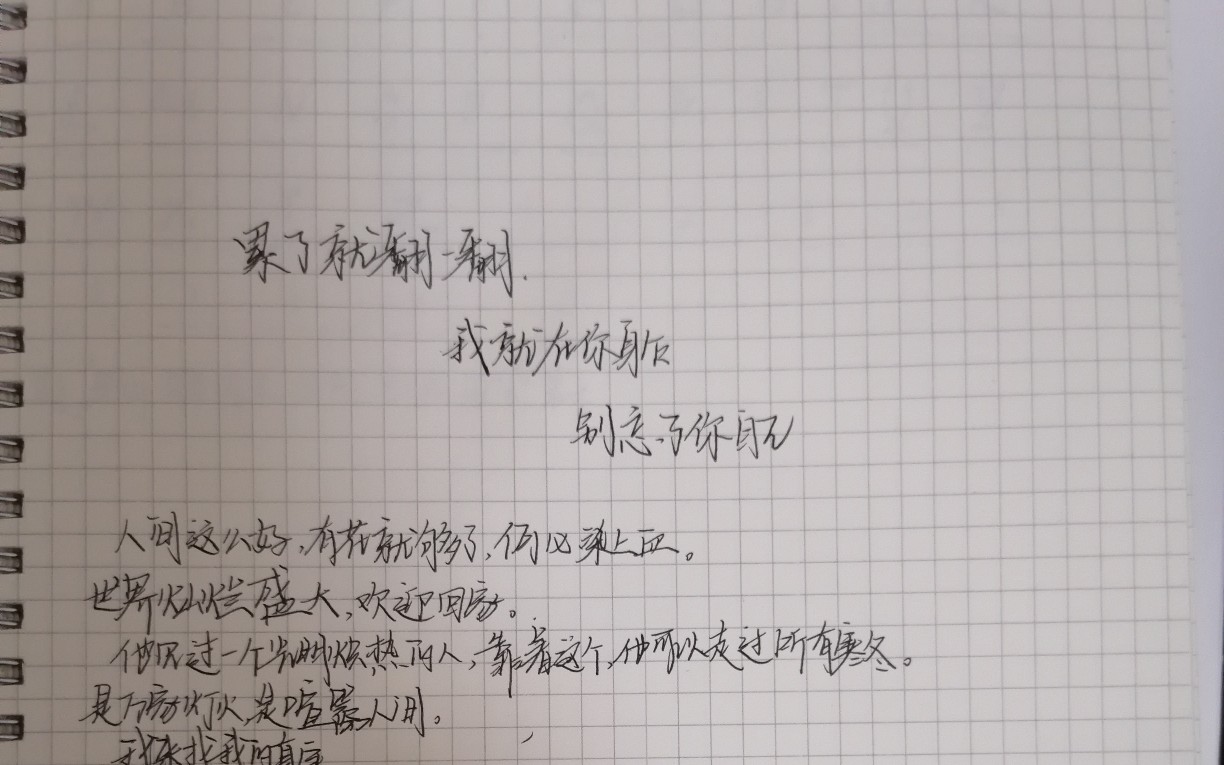 累了就翻一翻.
我就在你身后
别忘了你自己
人间这么好,有花就够了,何必染上血。
世界灿烂盛大,欢迎回家。
他见过一个光明炽热的人,靠着这个,他可以走过所有寒冬。
是万家灯火,是喧嚣人间。
我来找我的真